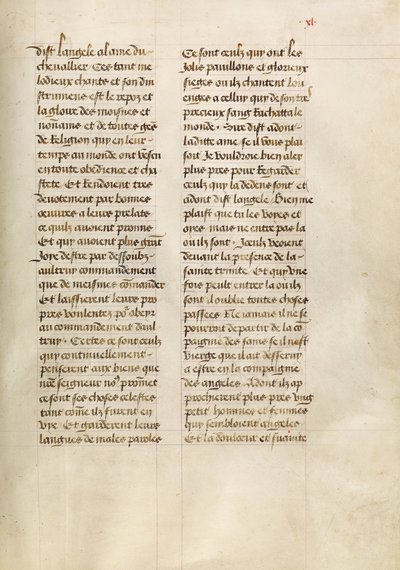 .xl.
dist langele a lame du
chevallier Ces tant me
lodieux chants et son din
strumens est le repoz et
la gloire des moisnes et
nonnains et de toutes gẽs
de Religion qui en leur
temps au monde ont vescu
en toute obedience et cha
steté Et rendoient tres
devotement par bonnes
œuvres a leurs prelats
ce quilz avoient promis
Et qui avoient plus grãt
Joye destre par dessoubz
aultruy commandement
que de meismes cõmander
Et laissierent leurs pro
pres voulentez pͬ obeyr
au commandement daul
truy · Certes ce sont ceulz
qui continuellement
penserent aux biens que
nrẽ seigneur noꝯ promet
ce sont ses choses celestes
tant cõme ilz furent en
vye Et garderent leurs
langues de males paroles
Ce sont ceulz qui ont les
Jolis pavillons et glorieux
sieges ou ilz chantent lou
enges a celluy qui de son tres
precieux sang Rachatta le
monde · Sire dist adont
la ditte ame se il vous plai
soit Je vouldroie bien aler
plus pres pour Regarder
ceulz qui la dedens sont et
adont dist langele Bien me
plaist que tu les voyes et
oyes mais ne entre pas la
ou ilz sont · Iceulz voient
devant la presence de la
sainte trinite Et qui une
fois peult entrer la ou ilz
sont il oublie toutes choses
passees Ne jamais il ne se
pourroit departir de la cõ
paignie des sains se il nest
vierge que il ait desservy
a estre en la compaignie
des angeles · Adont ilz ap
procherent plus pres ung
petit hommes et femmes
qui sembloient angeles
Et la doulceur et suavite